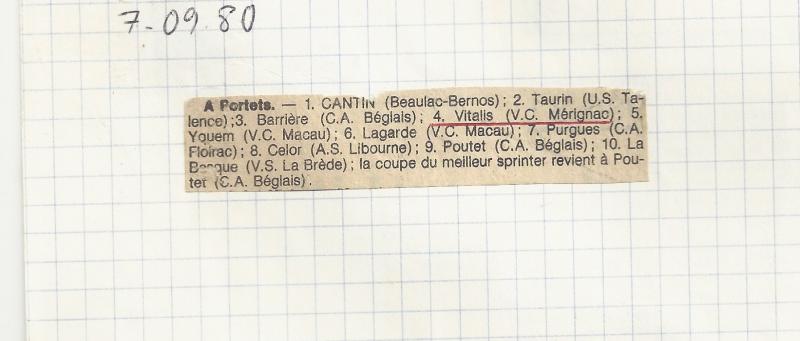 7-09.80
A Portets. — 1. CANTIN (Beaulac-Bernos) ; 2. Taurin (U.S. Ta-
lence) ;3. Barrière (C.A. Béglais) ; 4. Vitalis (V.C. Mérignac) ; 5.
Yquem (V.C. Macau) ; 6. Lagarde (V.C. Macau) ; 7. Purgues (C.A.
Floirac) ; 8. Celor (A.S. Libourne) ; 9. Poutet (C.A. Béglais) ; 10. La
(V.S. La Brède) ; la coupe du meilleur sprinter revient à Pou-
tet (C.A. Béglais).